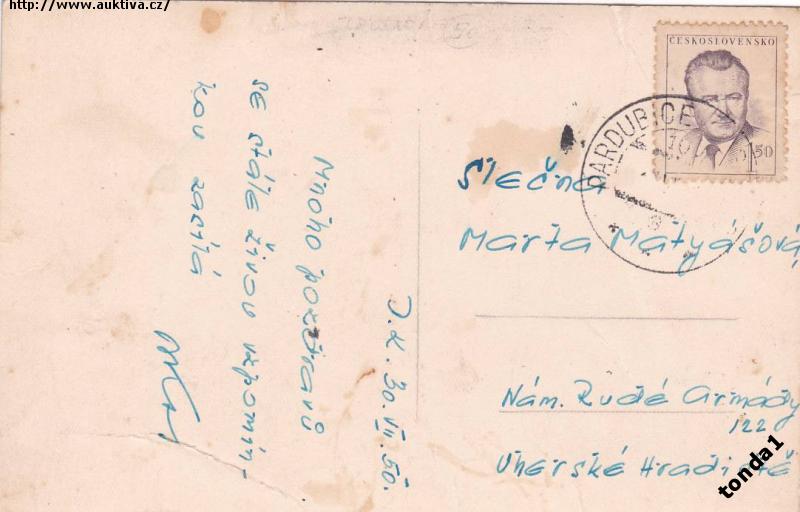 http://www.auktiva.cz/
ČESKOSLOVENSKO
1.50
PARDUBICE
Slečna
Marta Matyášová
Nám. Rudé Armády
122
Uherské Hradiště
30. VII. 50.
Mnoho pozdravů
se stále živou vzpomín-
kou zasílá
tonda1